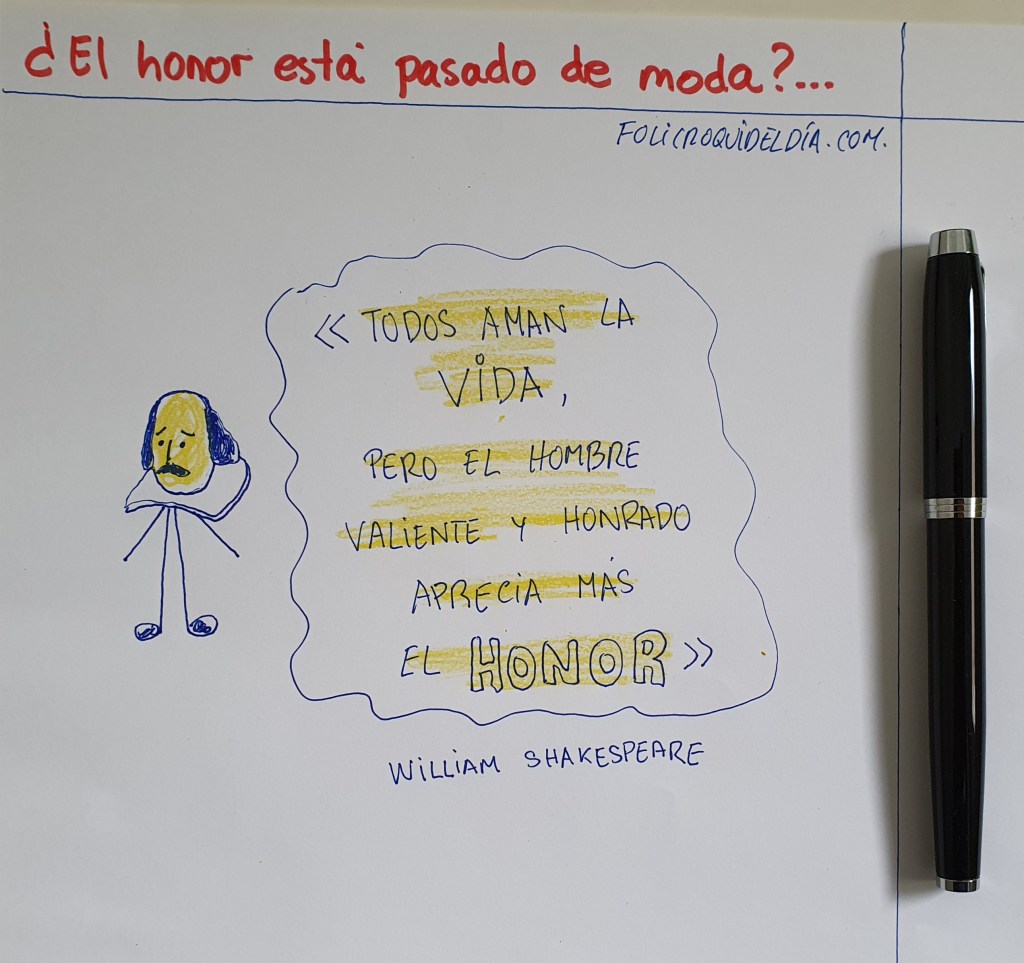 ¿El honor está pasado de moda?...
FOLICROQUIDELDÍA.COM.
« TODOS AMAN LA
VIDA,
PERO EL HOMBRE
VALIENTE Y HONRADO
APRECIA MÁS
EL HONOR »
WILLIAM SHAKESPEARE